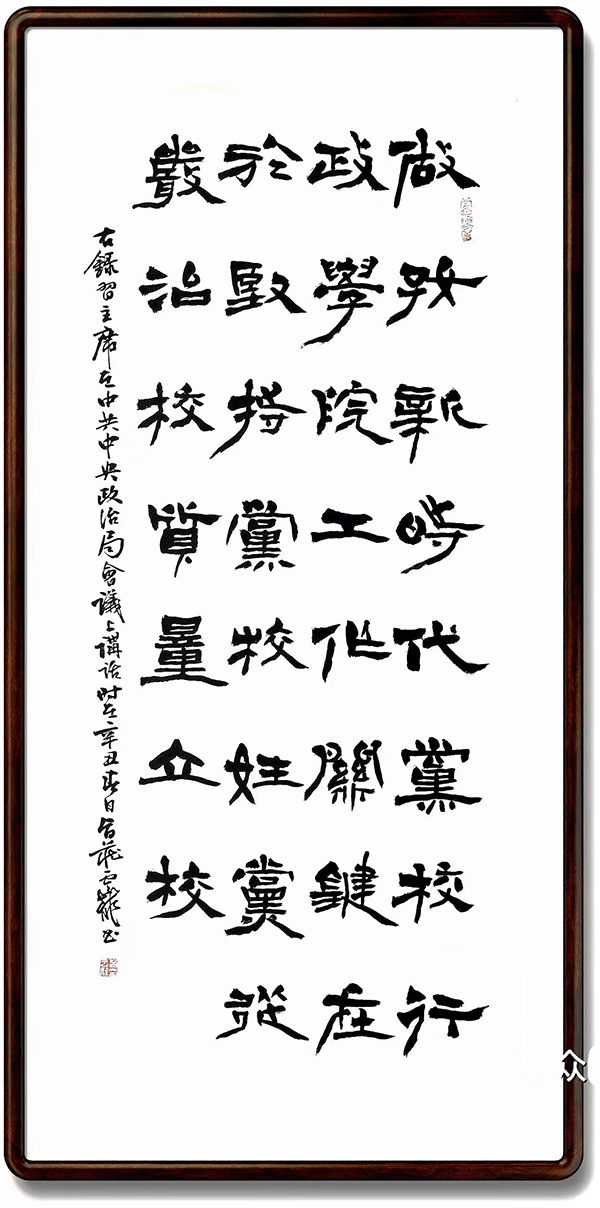 做好新時代黨校行
政學院工作關鍵在
於堅持黨校姓黨從
嚴治校質量立校
右錄習主席在中共中央政治局會議上講話时在辛丑春日書
众